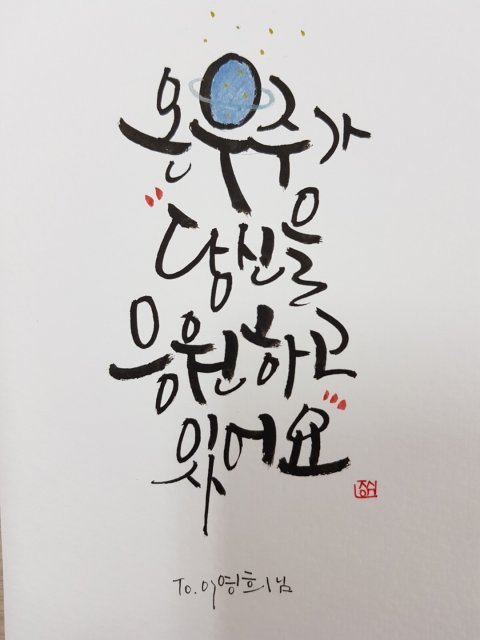 온 우주가
"당신을
응원하고
있어요"
To. 이영희님